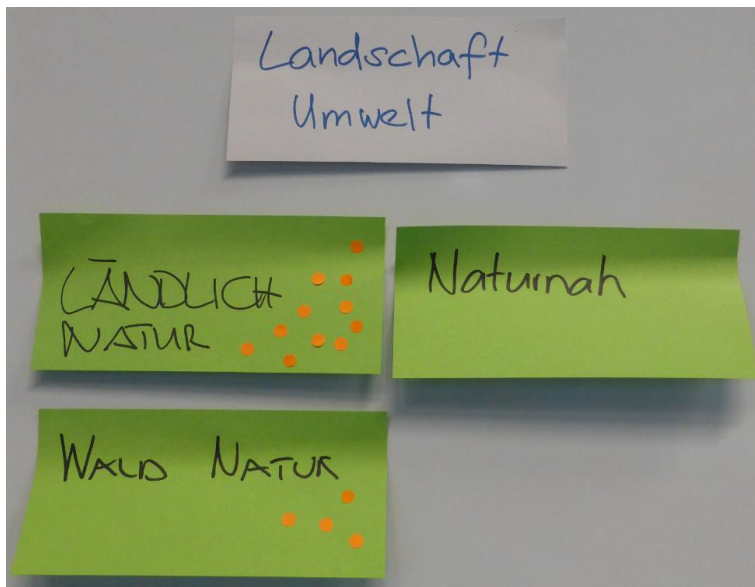 Landschaft
Umwelt
LÄNDLICH
NATUR
Naturnah
WALD NATUR